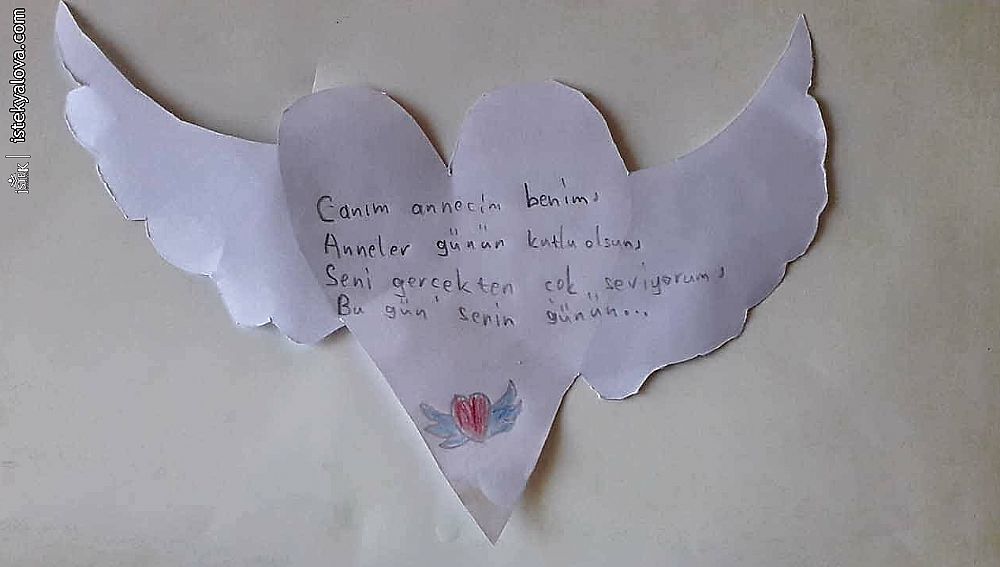 Canım annecim benim,
Anneler günün kutlu olsun,
Seni gerçekten çok seviyorum,
Bu gün senin günün...
istekyalova.com